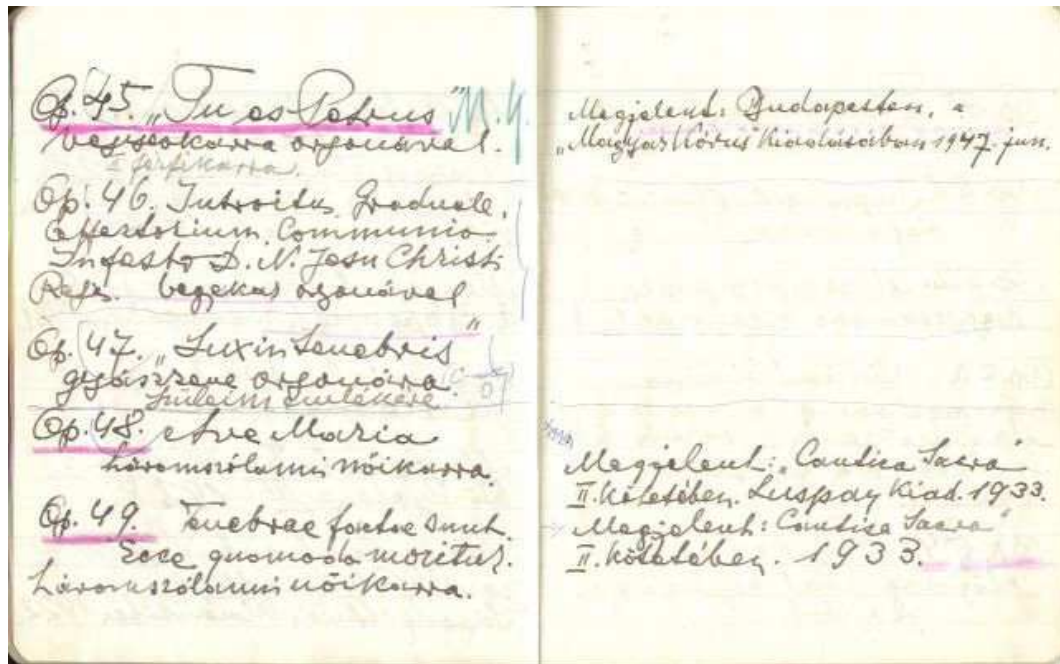 Op. 45. „Tu es Petrus" M. K.
vegyeskarra orgonával.
I férfikarra.
Op. 46. Introitus, Graduale,
Offertorium, Communio
In festo D. N. Jesu Christi
Regis. vegyeskar orgonával
Op. 47. „Lux in tenebris"
gyászzene orgonára
Szüleim emlékére
Op. 48. Ave Maria
háromszólamú nőikarra.
Op. 49. Tenebrae factae sunt.
Ecce quomodo moritur.
háromszólamú nőikarra.
Megjelent: Budapesten, a
„Magyar Kórus" kiadásában 1947. jun.
Megjelent: „Cantica Sacra"
II. kötetében. Luspay Kiad. 1933.
Megjelent: Cantica Sacra"
II. kötetében. 1933.